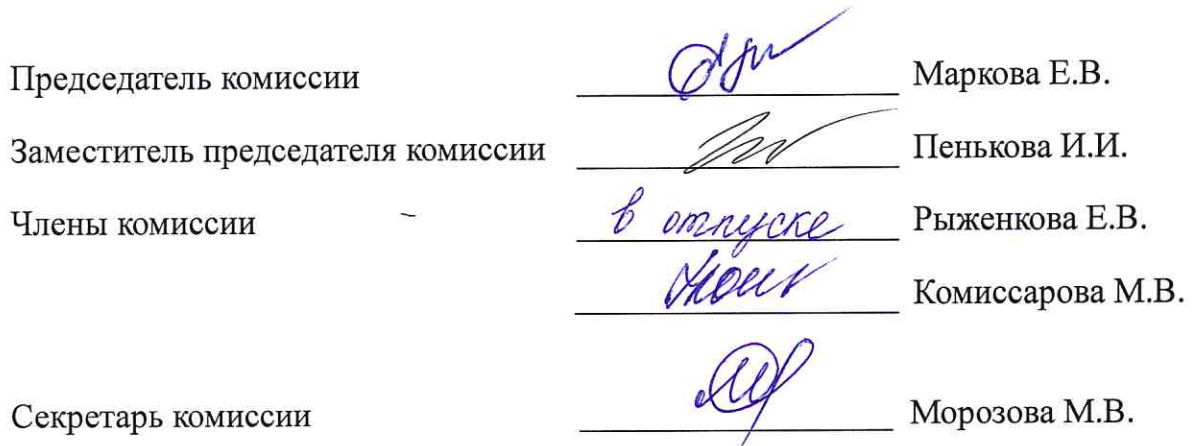 Председатель комиссии Маркова Е.В.
Заместитель председателя комиссии Пенькова И.И.
Члены комиссии в отпуске Рыженкова Е.В.
Комиссарова М.В.
Секретарь комиссии Морозова М.В.